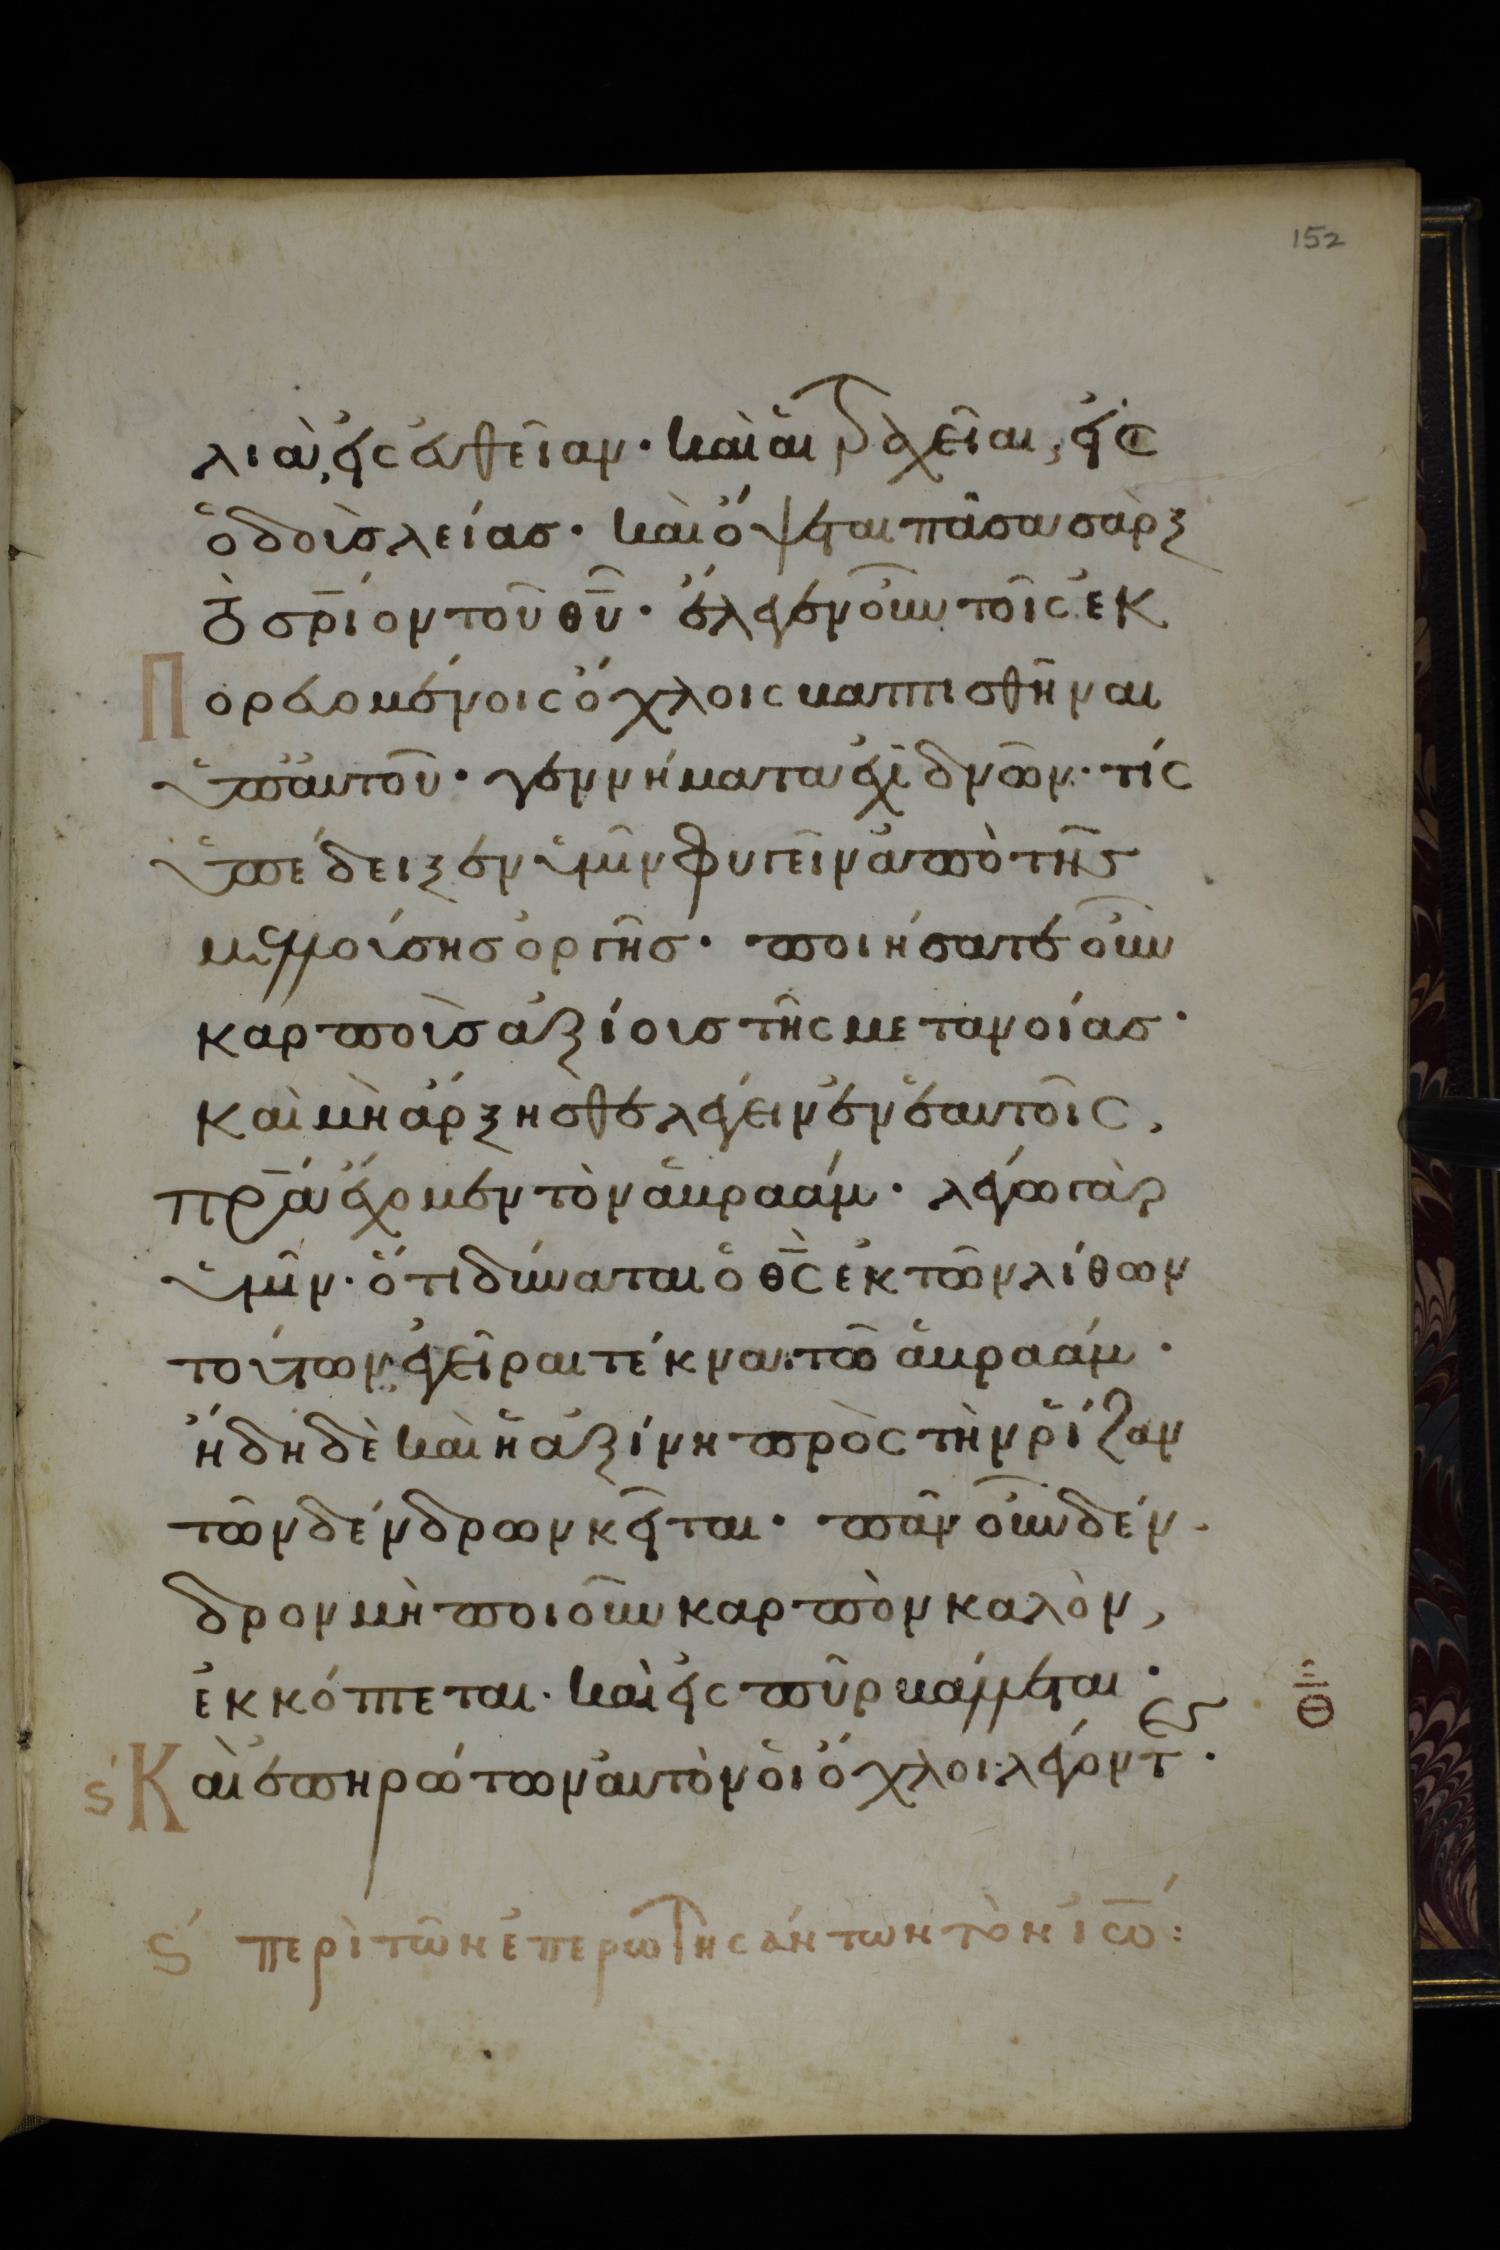 152
λιὰ, εἰς εὐθεῖαν· καὶ αἱ τραχεῖαι, εἰς
ὁδοὺς λείας· καὶ ὄψεται πᾶσα σὰρξ
τὸ σρ̅ίον τοῦ θυ̅· ἔλεγεν οὖν τοῖς ἐκ
Πορευομένοις ὄχλοις βαπτισθῆναι
ὑπ' αὐτοῦ· γεννήματα ἐχιδνῶν· τίς
ὑπέδειξεν ὑμῖν φυγεῖν ἀπὸ τῆς
μελλούσης ὀργῆς· ποιήσατε οὖν
καρποὺς ἀξίους τῆς μετανοίας·
καὶ μὴ ἄρξησθε λέγειν ἐν ἑαυτοῖς,
πρ̅α ἔχομεν τὸν ἁβραάμ· λέγω γὰρ
ὑμῖν· ὅτι δύναται ὁ θς̅ ἐκ τῶν λίθων
τούτων, ἐγεῖραι τέκνα τῶ ἁβραάμ·
ἤδη δὲ καὶ ἡ ἀξίνη πρὸς τὴν ῥίζαν
τῶν δένδρων κεῖται· πᾶν οὖν δέν
δρον μὴ ποιοῦν καρπὸν καλὸν,
ἐκκόπτεται· καὶ εἰς πῦρ βάλλεται·
ϛ Καὶ ἐπηρώτων αὐτὸν οἱ ὄχλοι λέγοντες·
ϛ περὶ τῶν ἐπερωτησάντων τὸν ἰω̅: